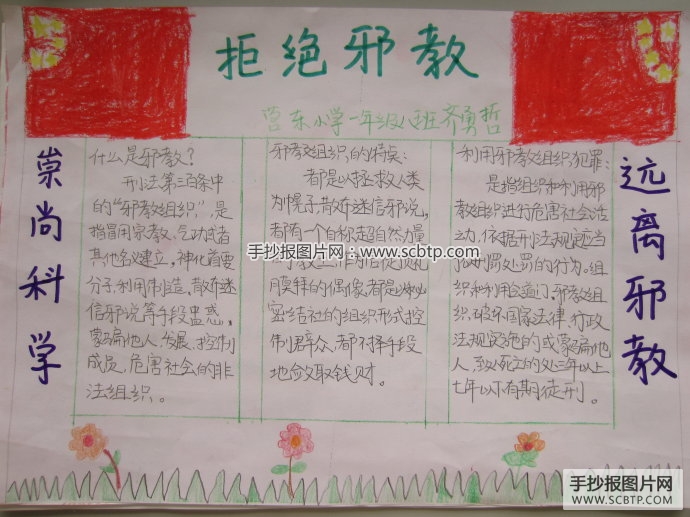 拒绝邪教
营东小学一年级八班齐勇哲
崇尚科学
什么是邪教?
刑法第三百条中
的“邪教组织,”是
指冒用宗教、气功或者
其他名义建立,神化首要
分子,利用制造、散布迷
信邪说等手段蛊惑、
蒙骗他人,发展、控制
成员,危害社会的非
法组织。
邪教组织的特点:
都是以拯救人类
为幌子,散布迷信邪说。
都有一个自称超自然力量
教 作为信徒顶礼
膜拜的偶像,都是以秘
密结社的组织形式控
制群众,都不择手段
地敛取钱财。
利用邪教组织犯罪:
是指组织和利用邪
教组织进行危害社会活
动,依据刑法规定应当
刑罚处罚的行为。组
织和利用会道门、邪教组
织、破坏国家法律、行政
法规实施的或蒙骗他
人,致死亡的处三年以上
七年以下有期徒刑。
远离邪教
手抄报图片网:www.scbtp.com
手抄报图片网
WWW.SCBTP.COM